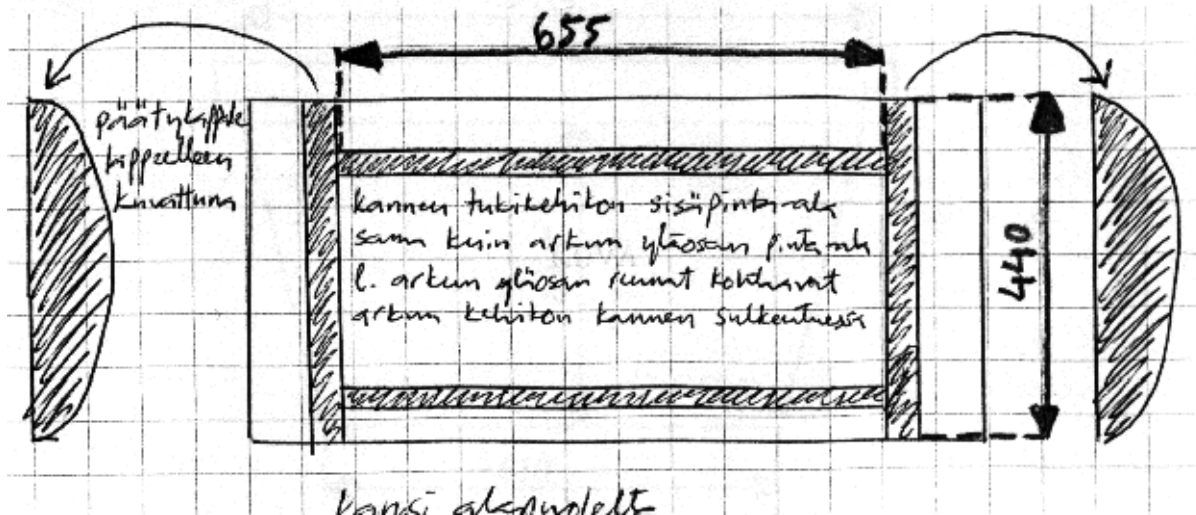 655
päätykappale
lappeelleen
kuvattuna
kannen tukikehikon sisäpinta-ala
sama kuin arkun yläosan pinta-ala
l. arkun yläosan reunat kohtaavat
arkun kehikon kannen sulkeutuessa
440
kansi alapuolelta